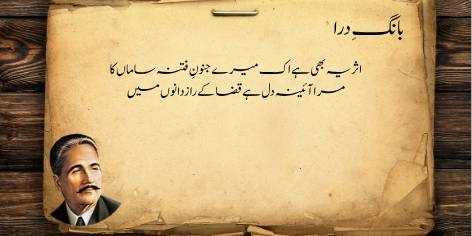 بانگِ درا
اثر یہ بھی ہے اک میرے جنونِ فتنہ ساماں کا
مرا آئینہ دل ہے قضا کے رازدانوں میں